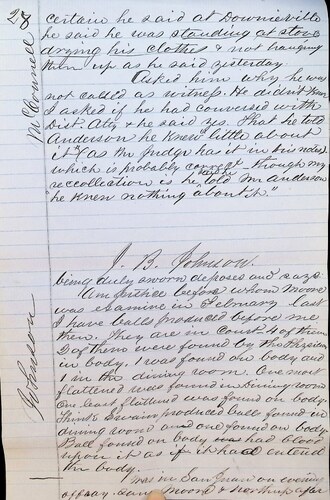 28
McConnell
certain he said at Downieville
he said he was standing at stove
drying his clothes & not hanging
them up as he said yesterday.
Asked him why he was
not called as witness. He didn't know
I asked if he had conversed with
Dist. Atty & he said yes. That he told
Anderson he knew "little about
it" as the Judge has it in his notes
which is probably correct though my
reccollection is he told Mr Anderson
he knew nothing about it."
Johnson
J. B. Johnson.
being duly sworn deposes and says.
Am justice before whom Moore
was examined in February last
I have balls produced before me
then. They are in Court 4 of them
2 of them were found by the
in body. 1 was found on body and
1 in the dining room. One most
flattened was found in Dining room
One least flattened was found on body.
Think Swain produced balls found in
dining room and one found on body
Ball found on body had blood
upon it as if it had entered
the body.
Was in San Juan on evening
of